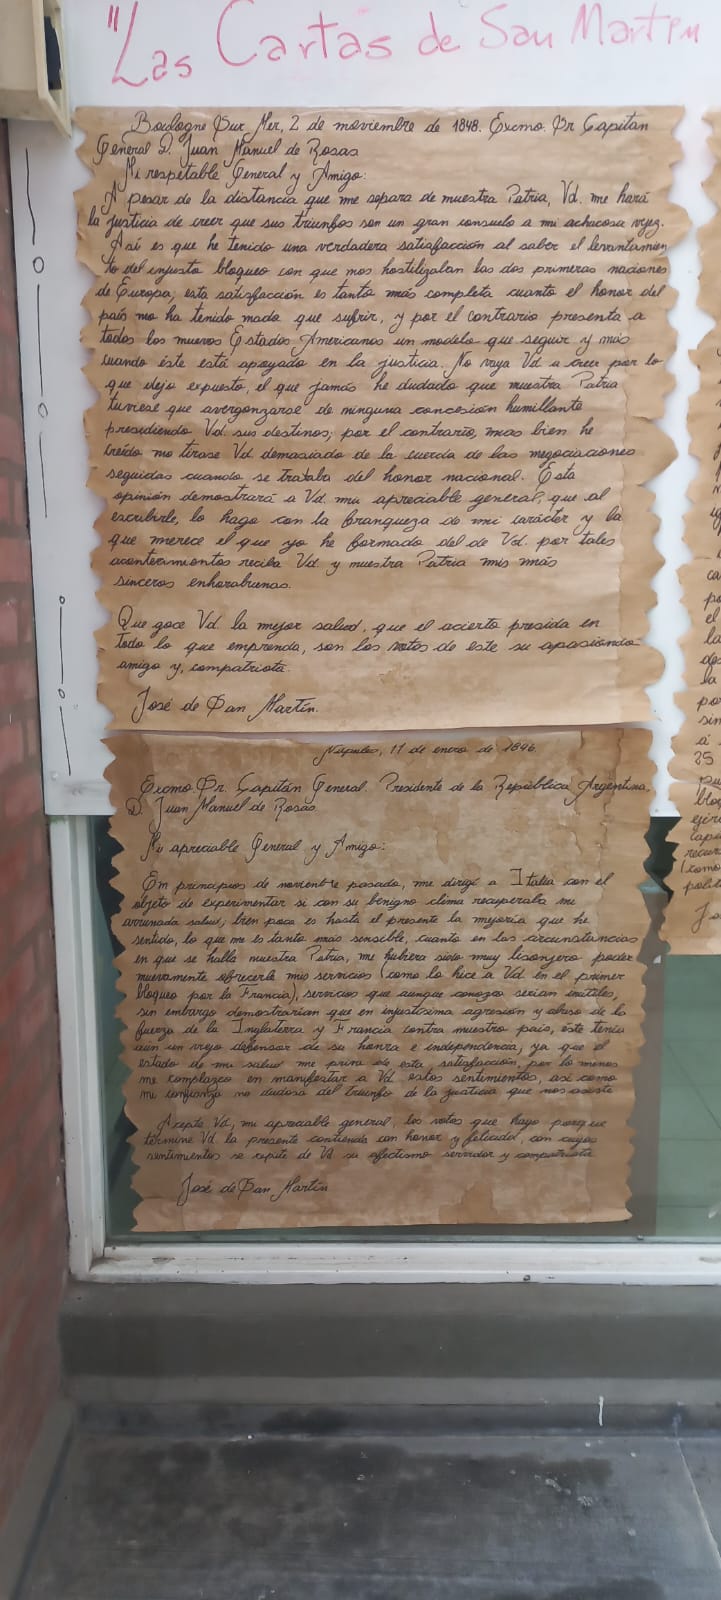 "Las Cartas de San Martin
Boulogne Sur Mer, 2 de noviembre de 1848. Excmo. Sr Capitan
General D. Juan Manuel de Rosas
Mi respetable General y Amigo:
A pesar de la distancia que me separa de nuestra Patria, Vd. me hará
la justicia de creer que sus triunfos son un gran consuelo a mi achacosa vejez.
Así es que he tenido una verdadera satisfacción al saber el levantamien
to del injusto bloqueo con que nos hostilizaban las dos primeras naciones
de Europa; esta satisfacción es tanto más completa cuanto el honor del
país no ha tenido nada que sufrir, y por el contrario presenta a
todos los nuevos Estados Americanos un modelo que seguir y más
cuando éste está apoyado en la justicia. No vaya Vd a creer por lo
que dejo expuesto, el que jamás he dudado que nuestra Patria
tuviese que avergonzarse de ninguna concesión humillante
presidiendo Vd. sus destinos; por el contrario, mas bien he
creído no tirase Vd demasiado de la cuerda de las negociaciones
seguidas cuando se trataba del honor nacional. Esta
opinión demostrará a Vd. mi apreciable general, que al
escribirle, lo hago con la franqueza de mi carácter y la
que merece el que yo he formado del de Vd. por tales
acontecimientos reciba Vd. y nuestra Patria mis más
sinceros enhorabuenas.
Que goce Vd. la mejor salud, que el acierto presida en
todo lo que emprenda, son los votos de este su apasionado
amigo y, compatriota.
José de San Martín.
Nápoles, 11 de enero de 1846
Excmo. Sr. Capitán General. Presidente de la República Argentina,
D. Juan Manuel de Rosas
Mi apreciable General y Amigo:
En principios de noviembre pasado, me dirigí a Italia con el
objeto de experimentar si con su benigno clima recuperaba mi
arruinada salud; bien poca es hasta el presente la mejoría que he
sentido, lo que me es tanto más sensible, cuanto en las circunstancias
en que se halla nuestra Patria, me hubiera sido muy lisonjero poder
nuevamente ofrecerle mis servicios (como lo hice a Vd en el primer
bloqueo por la Francia), servicios que aunque conozco serían inútiles,
sin embargo demostrarían que en injustísima agresión y abuso de la
fuerza de la Inglaterra y Francia contra nuestro país, éste tenía
aún un viejo defensor de su honra e independencia; ya que el
estado de mi salud me priva de esta satisfacción, por lo menos
me complazco en manifestar a Vd. estos sentimientos, así como
mi confianza no dudosa del triunfo de la justicia que nos asiste
Acepte Vd, mi apreciable general, los votos que hago porque
termine Vd la presente contienda con honor y felicidad, con cuyos
sentimientos se repite de Vd su afectísimo servidor y compatriota
José de San Martín
25